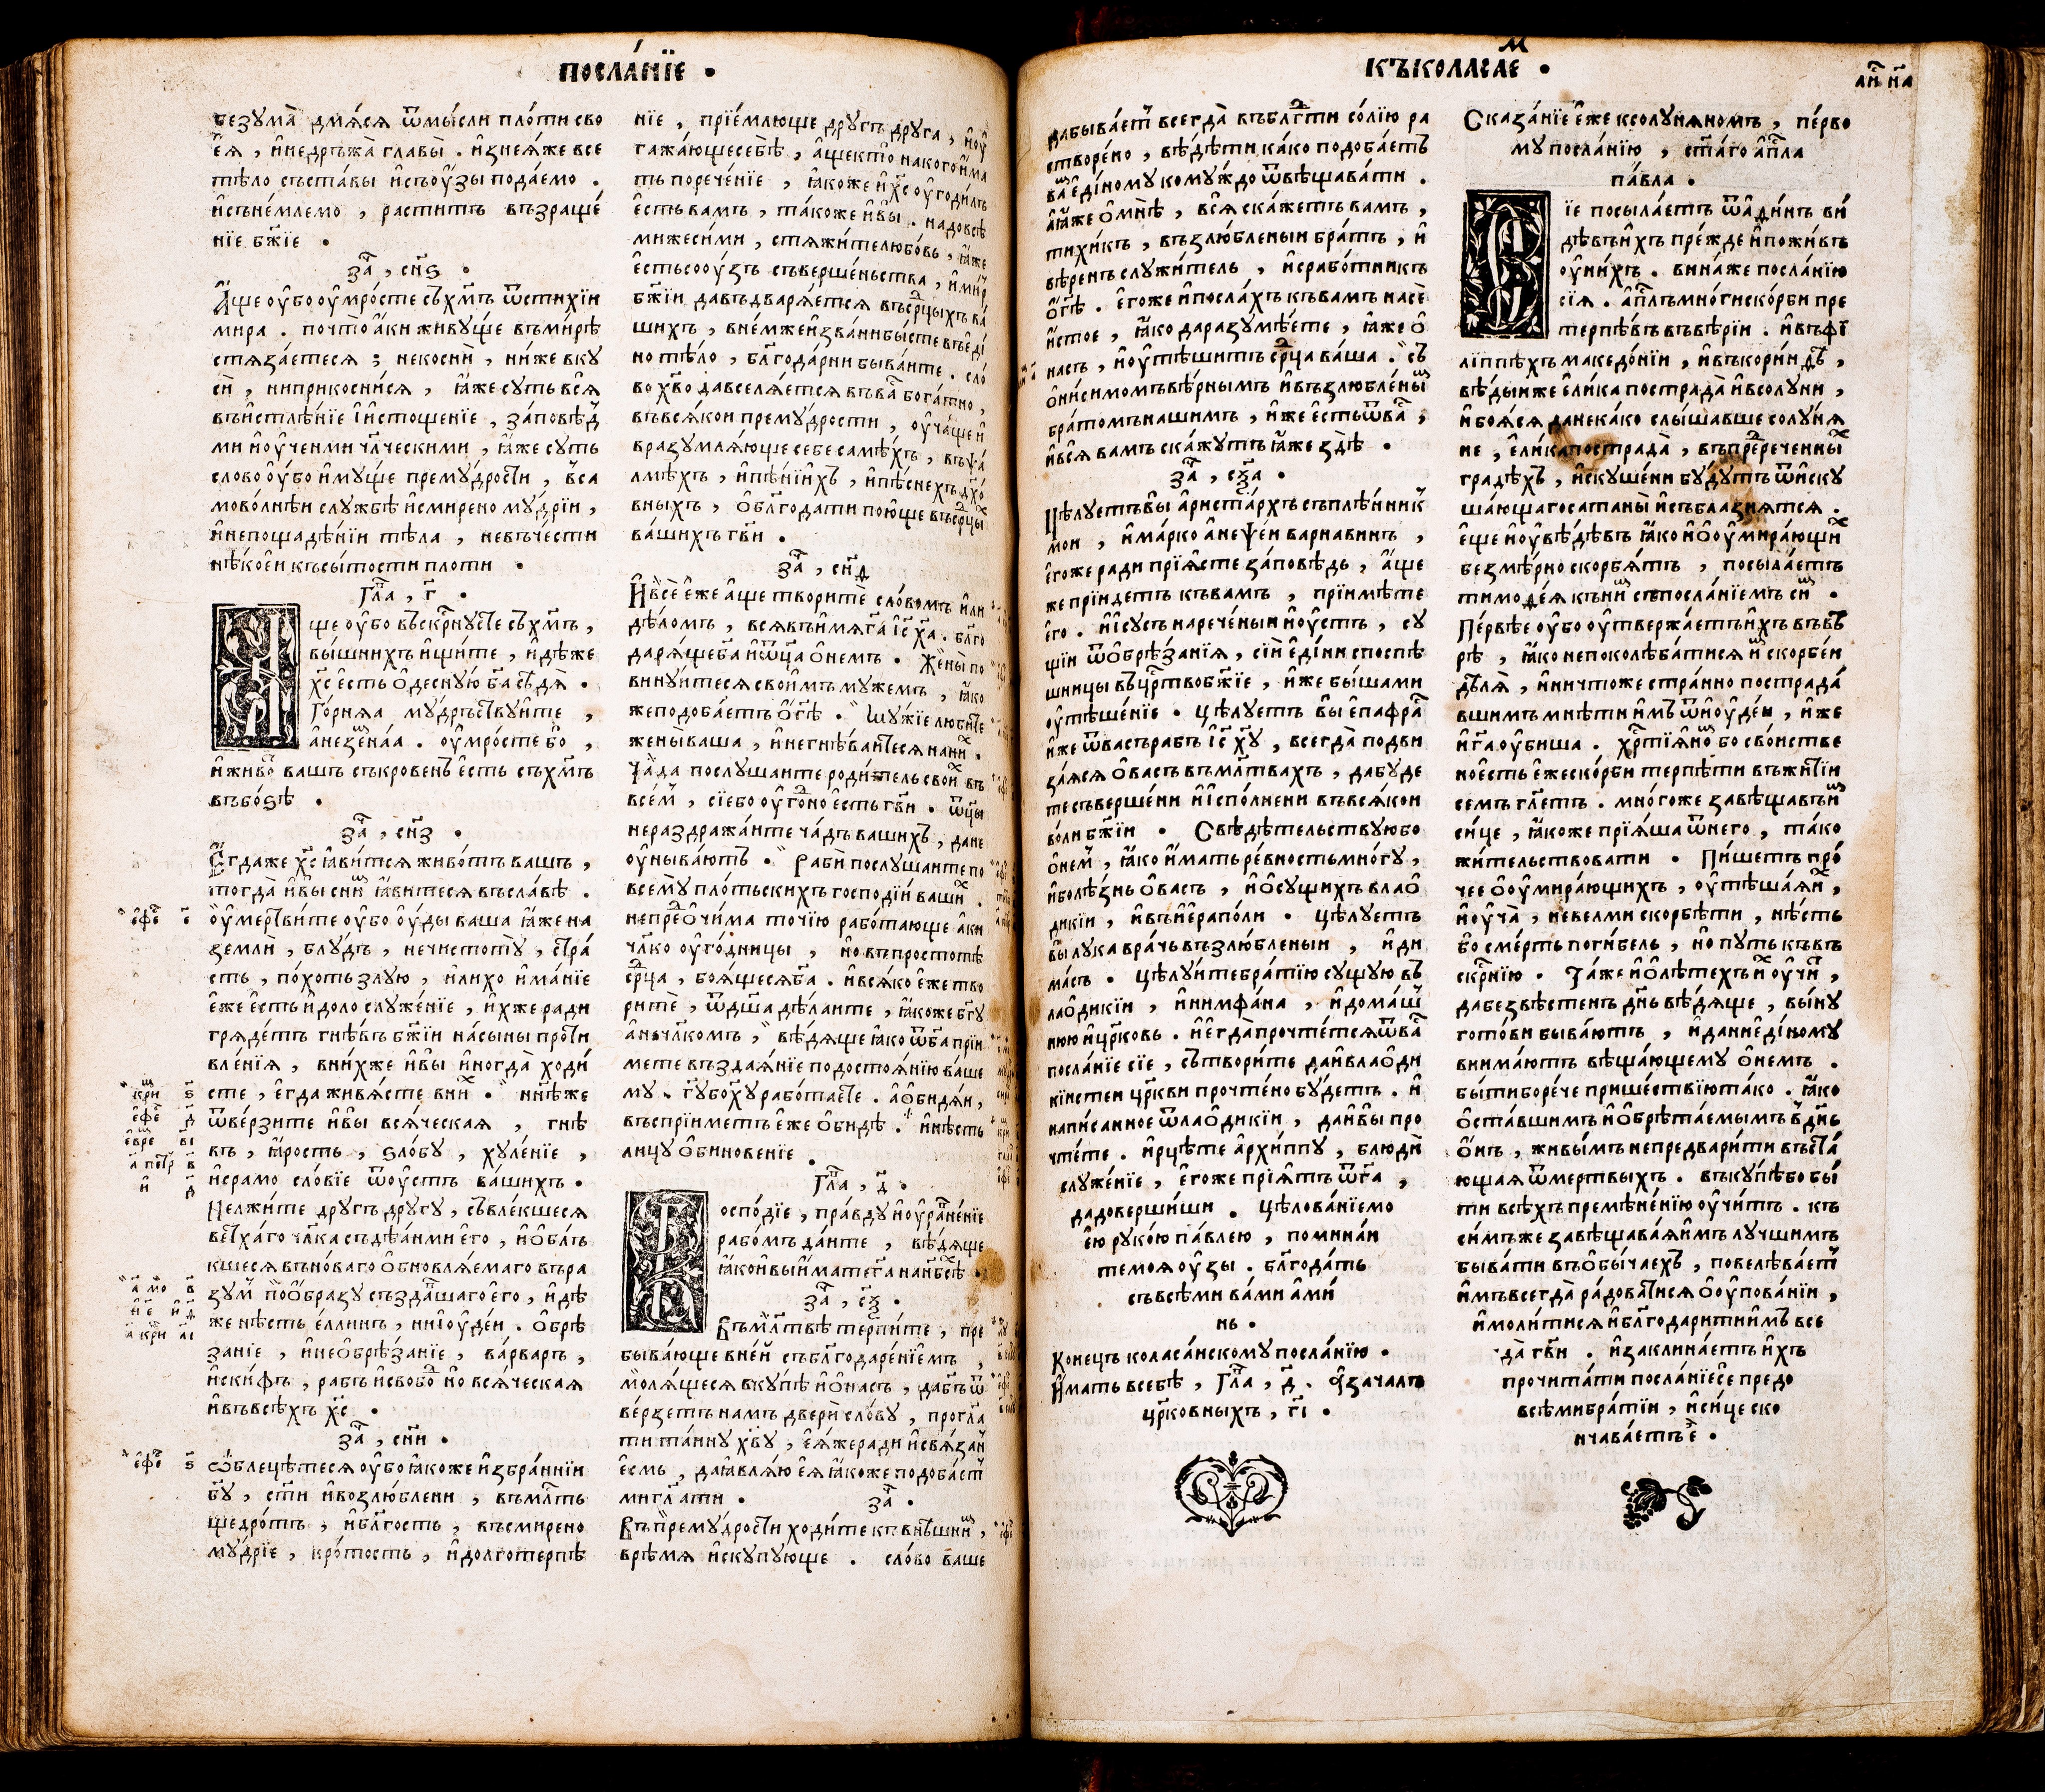 посла́нїе .
безꙋма̀ дмѧ́сѧ ѿмы́сли пло́ти сво
е́ѧ , и҆недръжа̀ главы̀ . и҆знеѧ́же все
тѣ́ло съста́вы и҆съꙋ҆́зы пода́емо .
и҆сънѐмлемо , расти́тъ възраще́
нїе бж҃їе .
за҃ , сн҃ѕ .
А҆́ще ꙋ҆́бо ꙋ҆мро́сте съхм҃ъ ѿстихїи
мира . почто̀ а҆́ки живꙋ́ще въми́рѣ
стѧза́етесѧ ; некосни́ , ни́же вкꙋ
си́ , ниприкосни́сѧ , ꙗ҆́же сꙋть всѧ̑
въи҆стлѣ́нїе и҆и҆стоще́нїе , за́повѣд
ми и҆ꙋ҆че́нми чл҃ческими , ꙗ҆́же сꙋть
сло́во ꙋ҆́бо и҆мꙋ́ще премꙋ́дрости , всѧ
мово́лнѣи слꙋжбѣ̀ и҆смирено мꙋ́дрїи ,
и҆непощадѣ́нїи тѣ́ла , невъче́сти
нѣ́коеи къ сы́тости пло́ти .
гла҃ , г҃ .
А҆ще ꙋ҆́бо въскр҃нꙋсте съхм҃ъ ,
вы́шнихъ и҆щи́те , и҆дѣ́же
хс҃ е҆́сть ѡ҆деснꙋ́ю ба҃ сѣдѧ̀ .
Го́рнѧѧ мꙋ́дръствꙋите ,
а҆незе́мнаа . ꙋ҆мро́сте бо ,
и҆живо́ вашъ съкрове́нъ е҆́сть съхм҃ъ
въбо́ѕѣ .
за҃ , сн҃з .
Е҆гда́же хс҃ ꙗ҆ви́тсѧ живо́тъ ва́шъ ,
тогда̀ и҆вы̀ сни́ ꙗ҆витесѧ въ сла́вѣ .
ꙋ҆мертви́те ꙋ҆́бо ꙋ҆́ды ваша ꙗ҆́же на
земли́ , блꙋ́дъ , нечистотꙋ̀ , стра́
сть , по́хоть злꙋю , и҆ли́хо и҆ма́нїе
е҆́же е҆́сть и҆доло слꙋже́нїе , и҆хже ради
грѧде́тъ гнѣ́въ бж҃їи на́сыны проти
вле́нїѧ , вни́хже и҆вы̀ и҆ногда̀ ходи́
сте , е҆гда живѧ́сте вни́х . нн҃ѣже
ѿве́рзите и҆вы̀ всѧ́ческаѧ , гнѣ
въ , ꙗ҆́рость , ѕло́бꙋ , хꙋле́нїе ,
и҆срамо сло́вїе ѿꙋ҆стъ вашихъ .
Нелжи́те дрꙋгъ дрꙋгꙋ , съвле́кшесѧ
ветха́го чл҃ка съдѣа́нми е҆го̀ , и҆ѡ҆бл҃ъ
кшесѧ въно́ваго ѡ҆бновлѧ́емаго въра
зꙋм поѡ҆́бразꙋ създа́вшаго е҆го̀ , и҆дѣ
же нѣ́сть е҆ллинъ , ниі҆ꙋде́и . ѡ҆брѣ
занїе , и҆неѡ҆брѣ́занїе , ва́рваръ ,
и҆ски́ѳъ , ра́бъ и҆свобо́ но всѧ́ческаѧ
и҆въвсѣ́хъ хс҃ .
за҃ , сн҃и .
Ѡ҆блецѣ́тесѧ ꙋ҆́бо ꙗ҆́коже и҆збра́ннїи
бг҃ꙋ , ст҃и и҆возлю́блени , въмл҃ть
щедро́тъ , и҆бл҃гость , въсмирено
мꙋ́дрїе , кро́тость , и҆долготерпѣ
нїе , прїе́млюще дрꙋ́гъ дрꙋ́га , и҆ꙋ҆у
гажа́ющесебѣ̀ , а҆́щекто̀ накого и҆́ма
ть порече́нїе , ꙗ҆́коже и҆хс҃ ꙋ҆годи́лъ
е҆́сть вамъ , та́коже и҆вы̀ . надовсѣ
ми́жесими , стѧжи́телюбо́вь , ꙗ҆́же
е҆́стьсоꙋ́зъ съверше́ньства , и҆ми́р
бж҃їи давъдварѧ́етсѧ въср҃цыхъ ва́
шихъ , вне́мжеи҆зва́нибы́сте въеди́
но тѣ́ло , бл҃года́рни быва́ите . сло́
во хв҃о давселѧ́етсѧ въва́ бога́тно ,
въвсѧ́кои премꙋ́дрости , ꙋ҆ча́ще и҆
вразꙋмлѧ́юще себе саме́хъ , въѱа́
лмѣхъ , и҆пѣ́нїихъ , и҆пѣ́снехъ дх҃о́
вныхъ , ѡ҆бл҃годати пою́ще въср҃цы́х
ва́шихъ гв҃и .
за҃ , сн҃ѳ
И҆всѐ е҆́же а҆́ще творитѐ сло́вомъ и҆ли
дѣ́ломъ , всѧ̑въи҆мѧ́га҃ і҆с҃ ха҃ . бл҃го
дарѧ́щеба҃ и҆ѿц҃а ѡ҆немъ . Жены̀ по
винꙋ́итесѧ свои́мъ мꙋжемъ , ꙗ҆ко
жеподоба́етъ ѡ҆́гѣ . Мꙋжїе люби́те
жены̀ ваша , и҆негнѣ́ваитесѧ нани́х .
Ча́да послꙋшаите роди́тель свои́х въ
все́м , сїебо ꙋ҆го́но е҆́сть гв҃и . ѿцы̀
нераздража́ите ча́дъ ваши́хъ , дане
ꙋ҆ныва́ютъ . Раби̑ послꙋшаите по
всемꙋ пло́тьскихъ господі́и ваши́х .
непредѡ҆чи́ма точїю рабо́тающе а҆́ки
чл҃ко ꙋ҆го́дницы , но въпростотѣ̀
ср҃ца , боѧ́щесѧба҃ . и҆всѧ́ко е҆́же тво
ритѐ , ѿдш҃а дѣ́лаите , ꙗ҆́коже бг҃ꙋ
а҆нечл҃комъ , вѣ́дѧще ꙗ҆́ко ѿба҃ прїи
мете въздаѧ́нїе подостоѧ́нїю ва́ше
мꙋ . гв҃ꙋбохꙋ҃ рабо́таете . а҆ѡ҆би́дѧи ,
въспрїиметъ е҆́же ѡ҆биде̑ . и҆нѣ́сть
лицꙋ ѡ҆бинове́нїе .
гла҃ , д҃ .
Господі́е , пра́вдꙋ и҆ꙋ҆равне́нїе
рабо́мъ да́ите , вѣ́дѧще
ꙗ҆́кои҆выи҆мате га҃ нанб҃сѣ .
за҃ , сѯ҃ .
Въмл҃твѣ терпи́те , пре
быва́юще вне́й съблг҃одаре́нїемъ ,
молѧ́щесѧ вкꙋ́пѣ и҆ѡ҆на́съ , дабг҃ъ ѿ
ве́рзетъ намъ двери̑ сло́вꙋ , прогл҃а
ти та́инꙋ хв҃ꙋ , е҆ѧ́жеради и҆свѧ́зан
е҆́смь , даꙗ҆влѧ́ю е҆ѧ̀ ꙗ҆́коже подоба́ет
мигл҃ати . за҃ .
Въпремꙋ́дрости ходи́те къ внѣ́шни́м ,
врѣ́мѧ и҆скꙋпꙋюще . сло́во ваше
е҆фе є҃
кри ѕ҃
е҆фе д҃
е҆вре ві҃
а҃ петр в҃
и҆ д҃
е҆фе ѕ҃
къколасаем .
дабыва́ет всегда̀ въбл҃гти со́лїю ра
створе́но , вѣ́дѣти ка́ко подоба́етъ
ва́ е҆ди́номꙋ комꙋ́ждо ѿвѣщава́ти .
а҆ꙗ҆́же ѡ҆мнѣ̀ , всѧ̑ ска́жетъ вамъ ,
тихи́къ , възлю́бленыи бра́тъ , и҆
вѣ́ренъ слꙋжи́тель , и҆срабо́тникъ
ѡ҆́гѣ . е҆гоже и҆посла́хъ къвамъ насѐ
и҆́стое , ꙗ҆́ко даразꙋмѣ́ете , ꙗ҆́же ѡ҆
насъ , и҆ꙋ҆тѣ́шитъ ср҃ца ва́ша . съ
ѡ҆ни́симомъвѣ́рнымъ и҆възлюбле́ны́м
бра́томънашимъ , и҆́же е҆́стьѿва́с ,
и҆всѧ̑ вамъ ска́жꙋтъ ꙗ҆́же здѣ̀ .
за҃ , сѯ҃а .
Цѣлꙋетъвы̀ а҆риста́рхъ съплѣ́нник
мои , и҆ма́рко а҆неѱе́и варнавинъ ,
е҆гоже ради прїѧ́сте за́повѣдь , а҆́ще
же прїи́детъ къвамъ , прїимѣ́те
е҆го . и҆і҆сꙋсъ нарече́ныи и҆ꙋ҆стъ , сꙋ
щїи ѿѡ҆брѣ́занїѧ , сі́и е҆ди́ни споспѣ́
шницы въцр҃твобж҃їе , и҆́же бы́шами
ꙋ҆тѣ́шенїе . цѣлꙋетъ вы̀ е҆пафра́с
и҆́же ѿвасърабъ і҆с҃ хꙋ҃ , всегда̀ подви
за́ѧсѧ ѡ҆васъ въмл҃твахъ , дабꙋде
тесъверше́ни и҆и҆спо́лнени въвсѧ́кои
во́ли бж҃їи . Свѣдѣтельствꙋюбо
ѡ҆нем , ꙗ҆́ко и҆́мать ре́вностьмно́гꙋ ,
и҆болѣ́знь ѡ҆васъ , и҆ѡ҆сꙋщихъ влаѡ҆
дикїи , и҆въи҆ерапо́ли . цѣлꙋетъ
вы̀ лꙋка вра́чь възлю́бленыи , и҆ди
ма́съ . цѣлꙋ́ите бра́тїю сꙋщꙋю въ
лаѡ҆дикїи , и҆нимфа́на , и҆дома́ш
нюю и҆црк҃овь . и҆е҆гда̀ прочте́тсѧѿва́с
посла́нїе сїе , сътвори́те даи҆влаѡ҆ди
кїистеи црк҃ви прочте́но бꙋ́детъ . и҆
написанное ѿлаѡ҆дикїи , даи҆вы̀ про
чте́те . и҆рцѣ́те а҆рхи́ппꙋ , блюди̑
слꙋже́нїе , е҆гоже прїѧ́тъ ѿга҃ ,
дадоверши́ши . цѣлова́нїемо
е҆ю рꙋко́ю па́влею , помина́и
темоѧ ꙋ҆́зы . бл҃года́ть
съвсѣ́ми ва́ми а҆ми́
нь .
Коне́цъ коласа́искомꙋ посла́нїю .
И҆мать всебѣ̀ , гла҃ , д҃ . а҆зача́лъ
црк҃о́вныхъ , гі҃ .
Сказа́нїе е҆́же ксолꙋнѧномъ , пе́рво
мꙋ посла́нїю , ст҃а́го а҆пл҃а
па́вла .
Сїе посыла́етъ ѿа҆ди́нъ ви́
дѣвъи҆хъ пре́жде и҆пожи́въ
ꙋ҆ни́хъ . вина́же посла́нїю
сїѧ . а҆пл҃ъмно́гиско́рби пре
терпѣ́въ въвѣ́рїи . и҆въфі
лі́ппѣхъ македо́нїи , и҆въкори́нѳѣ ,
вѣ́дыиже е҆ли́ка пострада̀ и҆всолꙋни ,
и҆боѧ́сѧ данека́ко слы́шавше солꙋнѧ
не , е҆ли́капострада̀ , въпредречены́х
градѣ́хъ , и҆скꙋше́ни бꙋ́дꙋтъ ѿи҆скꙋ
ша́ющагосатаны̀ и҆събла́знѧтсѧ .
е҆ще и҆ꙋ҆вѣ́дѣвъ ꙗ҆́ко и҆ѡ҆ꙋ҆мира́ющи́х
безмѣ́рно скорбѧ́тъ , посыла́етъ
тимоѳе́ѧ къни́м съпосла́нїемъ си́м .
Пе́рвѣе ꙋ҆́бо ꙋ҆твержа́етъи҆хъ въвѣ
рѣ , ꙗ҆́ко непоколѣба́тисѧ и҆м скорбе́и
дѣлѧ̀ , и҆ничто́же стра́нно пострада́
вшимъ мнѣ́ти и҆мъ ѿі҆ꙋде́и , и҆́же
и҆га҃ ꙋ҆бища . хр҃тїѧ́но́м бо сво́иствє
ное́сть е҆́жеско́рби терпѣ́ти въжи́тїи
семъ гл҃етъ . мно́гоже завѣщавъи́м
си́це , ꙗ҆́коже прїѧ́ша ѿнего , та́ко
жи́тельствовати . Пи́шетъ про́
чее ѡ҆ꙋ҆мира́ющихъ , ꙋ҆тѣша́ѧи́х ,
и҆ꙋ҆ча̀ , невелми скорбѣ́ти , нѣ́сть
бо сме́рть поги́бель , но пꙋть къвъ
скрн҃їю . Та́же и҆ѡ҆лѣ́техъи́х ꙋ҆чи́т ,
дабезвѣ́стенъ дн҃ь вѣ́дѧще , вы́нꙋ
гото́ви быва́ютъ , и҆данне҆ди́номꙋ
внима́ютъ вѣща́ющемꙋ ѡ҆немъ .
бы́тиборе́че прише́ствїюта́ко . ꙗ҆́ко
ѡ҆ста́вшимъ и҆ѡ҆брѣта́емымъ вдн҃ь
ѡ҆́нъ , живы́мъ непредвари́ти въста́
ющаѧ ѿмертвыхъ . въкꙋпѣ́бо бы́
ти всѣ́хъ премѣне́нїю ꙋ҆чи́тъ . къ
си́мъже завѣщава́ѧи҆мъ лꙋчшимъ
быва́ти въѡ҆бы́чаехъ , повелѣва́ет
и҆мъвсегда̀ ра́доватисѧ ѡ҆ꙋ҆пова́нїи ,
и҆моли́тисѧ и҆бл҃годарити и҆мъ все
гда̀ гв҃и . и҆заклина́етъ и҆хъ
прочита́ти посла́нїесѐ предо
всѣ́мибра́тїи , и҆си́це ско
нчава́етъ е҆̀ .